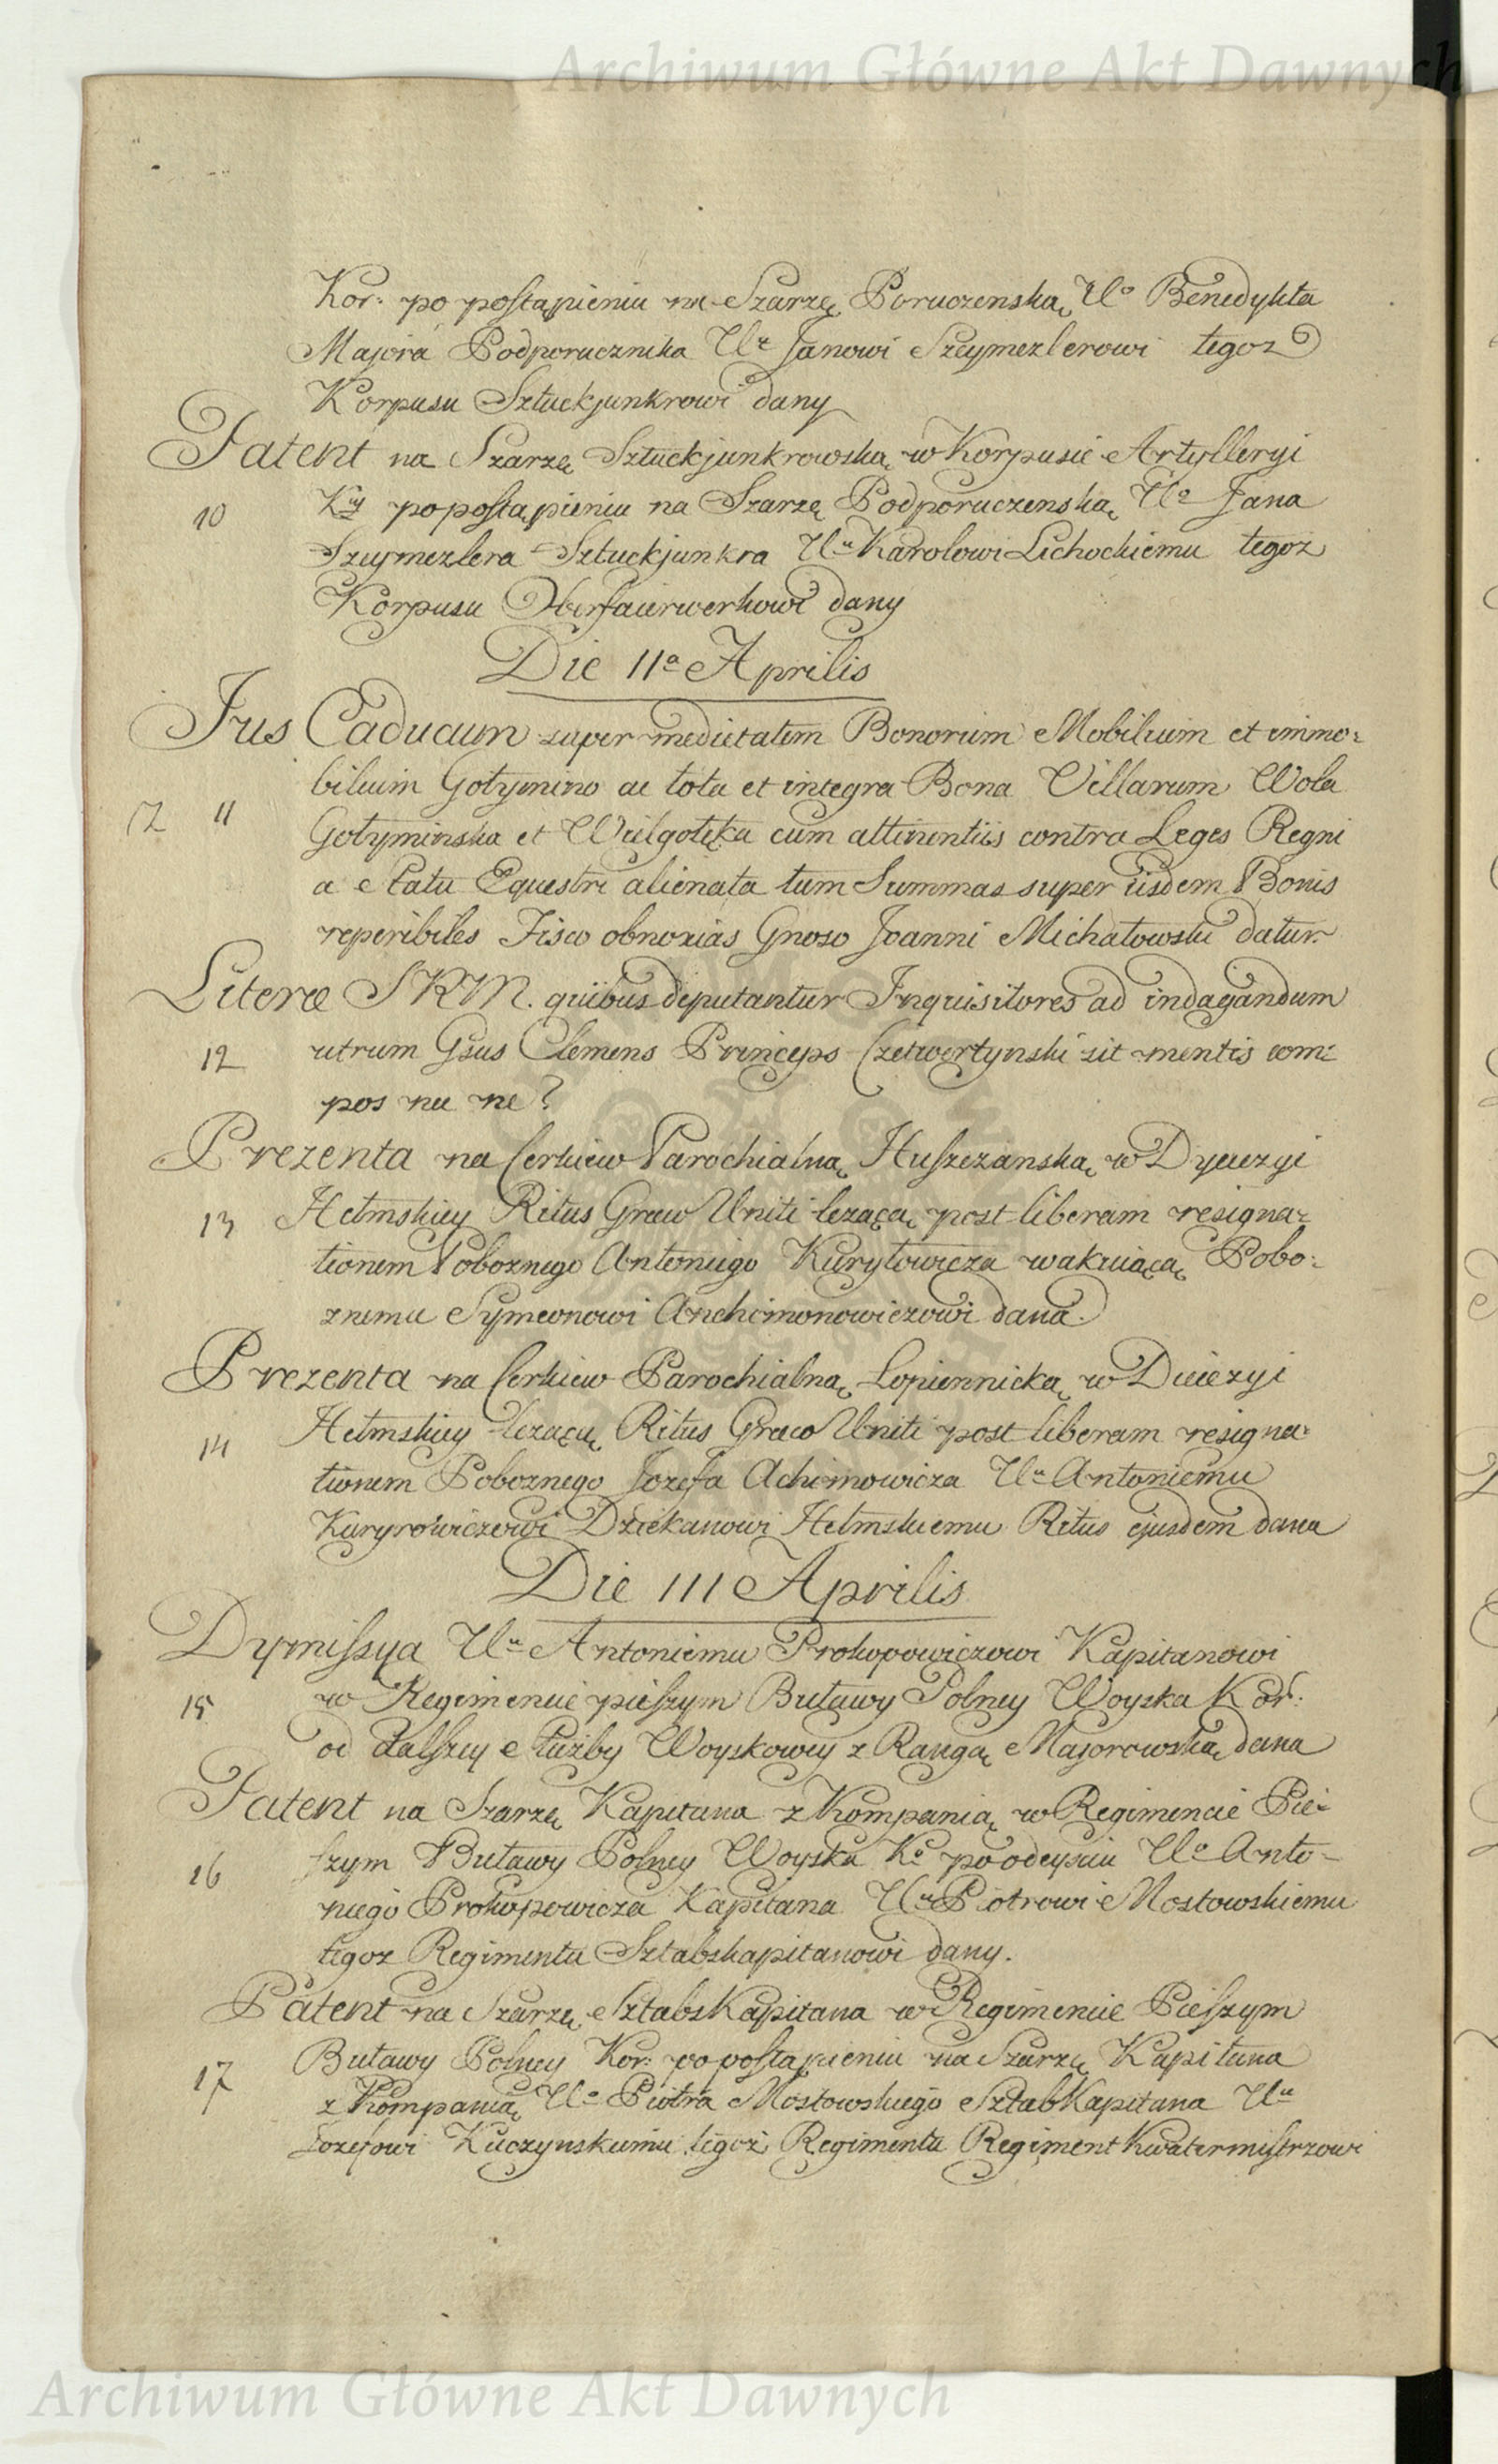 Archiwum Główne Akt Dawnych
Kor: po postąpieniu na Szarzę Poruczenską Uo Benedykta
Majora Podporucznika Ur Janowi Szeymezlerowi tegoz
Korpusu Sztuckjunkrowi dany
Patent na Szarzę Sztuckjunkrowską w Korpusie Artylleryi
10 Key po postąpieniu na Szarzę Podporuczenską Uo Jana
Szeymezlera Sztuckjunkra Uu Karolowi Lichockiemu tegoz
Korpusu Oberfaierwerkowi dany
Die 11a Aprilis
Jus Caducum super medietatem Bonorum Mobilium et immo:
bilium Gołymino ac tota et integra Bona Villarum Wola
12 11 Gołyminska et Wielgołęka cum attinentiis contra Leges Regni
a Statu Equestri alienata tum Summas super iisdem Bonis
reperibiles Fisco obnoxias Gnoso Joanni Michałowski datur.
Literæ SKM. quibus deputantur Inquisitores ad indagandum
12 utrum Gsus Clemens Princeps Czetwertynski sit mentis com:
pos nec ne?
Prezenta na Cerkiew Parochialną Huszczanską w Dyecezyi
13 Hełmskiey Ritus Græco Uniti lezącą post liberam resigna:
tionem Poboznego Antoniego Kuryłowicza wakuiącą Pobo:
znemu Symeonowi Anchimonowiczowi dana.
Prezenta na Cerkiew Parochialną Łopiennicką w Diecezyi
14 Hełmskiey lezącą Ritus Græco Uniti post liberam resigna:
tionem Poboznego Jozefa Achimowicza Uu Antoniemu
Kuryłowiczowi Dziekanowi Hełmskiemu Ritus ejusdem dana
Die 111 Aprilis
Dymissya Uu Antoniemu Prokopowiczowi Kapitanowi
15 w Regimencie pieszym Buławy Polney Woyska Kor:
od dalszey służby Woyskowey z Rangą Majorowską dana
Patent na Szarzę Kapitana z Kompanią w Regimencie Pie:
16 szym Buławy Polney Woyska Ko po odeysciu Uo Anto-
niego Prokopowicza Kapitana Uu Piotrowi Mostowskiemu
tegoz Regimentu Sztabskapitanowi dany.
Patent na Szarzę SztabsKapitana w Regimencie Pieszym
17 Buławy Polney Kor: po postąpieniu na Szarzę Kapitana
z Kompanią Uo Piotra Mostowskiego SztabKapitana Uu
Jozefowi Kuczynskiemu tegoż Regimentu Regiment Kwatermistrzowi
Archiwum Główne Akt Dawnych